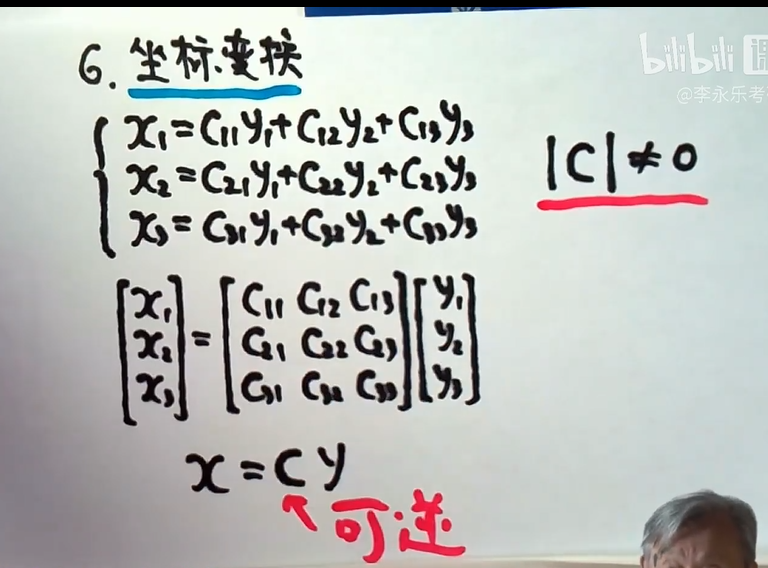 bilibili 课
@李永乐考
6. 坐标变换
x₁=C₁₁y₁+C₁₂y₂+C₁₃y₃
x₂=C₂₁y₁+C₂₂y₂+C₂₃y₃
x₃=C₃₁y₁+C₃₂y₂+C₃₃y₃
|C|≠0
[x₁] = [C₁₁ C₁₂ C₁₃] [y₁]
[x₂] = [C₂₁ C₂₂ C₂₃] [y₂]
[x₃] = [C₃₁ C₃₂ C₃₃] [y₃]
x=Cy
可逆